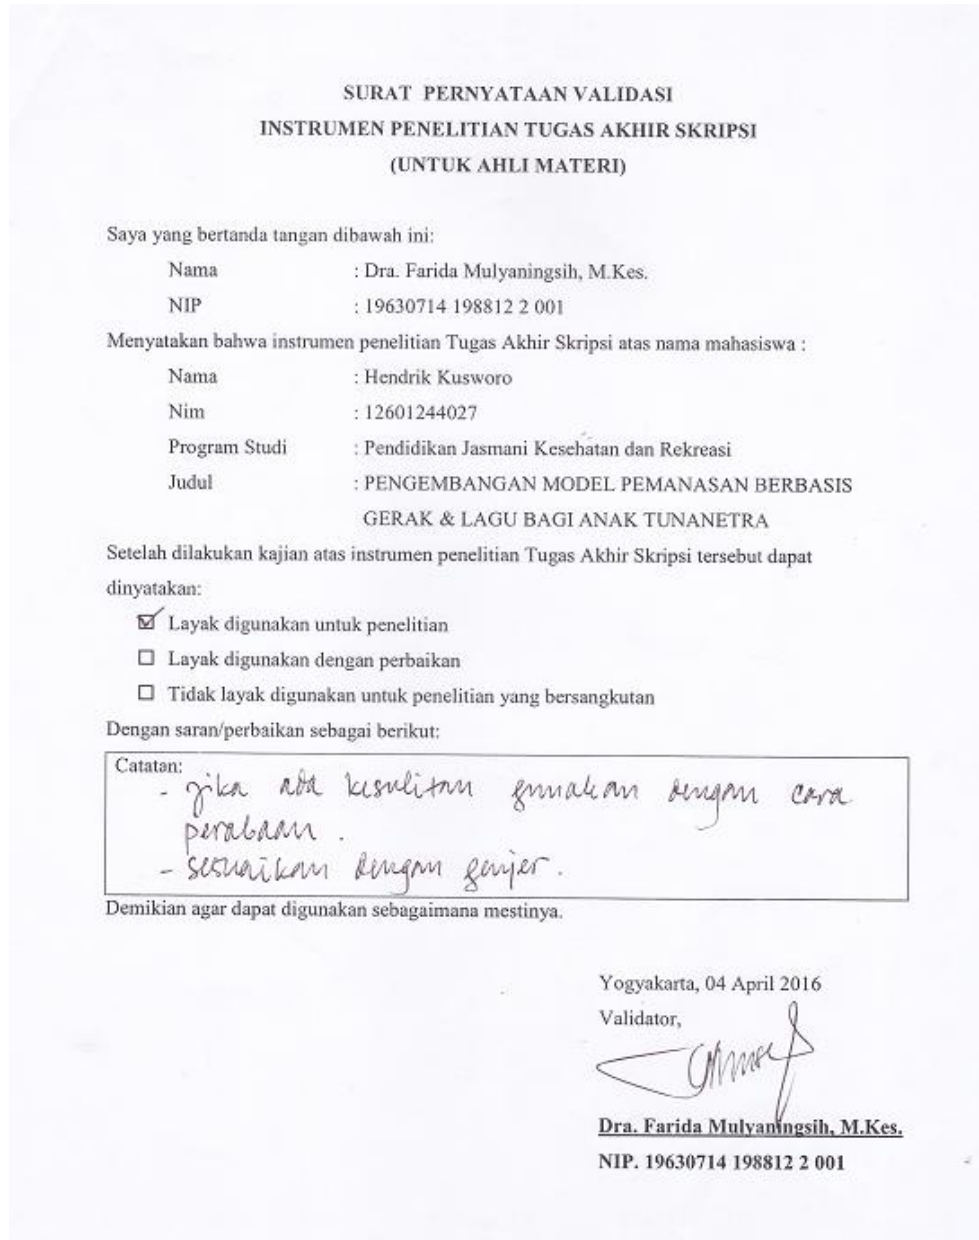 SURAT PERNYATAAN VALIDASI
INSTRUMEN PENELITIAN TUGAS AKHIR SKRIPSI
(UNTUK AHLI MATERI)
Saya yang bertanda tangan dibawah ini:
Nama : Dra. Farida Mulyaningsih, M.Kes.
NIP : 19630714 198812 2 001
Menyatakan bahwa instrumen penelitian Tugas Akhir Skripsi atas nama mahasiswa :
Nama : Hendrik Kusworo
Nim : 12601244027
Program Studi : Pendidikan Jasmani Kesehatan dan Rekreasi
Judul : PENGEMBANGAN MODEL PEMANASAN BERBASIS
GERAK & LAGU BAGI ANAK TUNANETRA
Setelah dilakukan kajian atas instrumen penelitian Tugas Akhir Skripsi tersebut dapat
dinyatakan:
☑ Layak digunakan untuk penelitian
☐ Layak digunakan dengan perbaikan
☐ Tidak layak digunakan untuk penelitian yang bersangkutan
Dengan saran/perbaikan sebagai berikut:
Catatan:
- jika ada kesulitan gunakan dengan cara
perabaan.
- sesuaikan dengan
Demikian agar dapat digunakan sebagaimana mestinya.
Yogyakarta, 04 April 2016
Validator,
Dra. Farida Mulyaningsih, M.Kes.
NIP. 19630714 198812 2 001